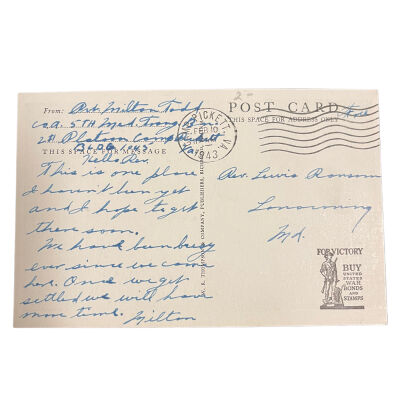 From: Pvt. Milton Todd
Co. A. 5TH Med. Trng. Bn.
2d Platoon Camp Pickett
BLDG 1045 Va.
THIS SPACE FOR MESSAGE
Hello Rev.
This is one place
I haven't been yet
and I hope to get
there soon.
We have been busy
ever since we came
here. Once we get
settled we will have
more time.
Milton
2-
POST CARD
THIS SPACE FOR ADDRESS ONLY
PICKETT, VA.
FEB 10
1943
Rev. Lewis Ransom
Lonaconing
Md.
FOR VICTORY
BUY
UNITED
STATES
WAR
BONDS
AND
STAMPS
COMPANY, PUBLISHERS,